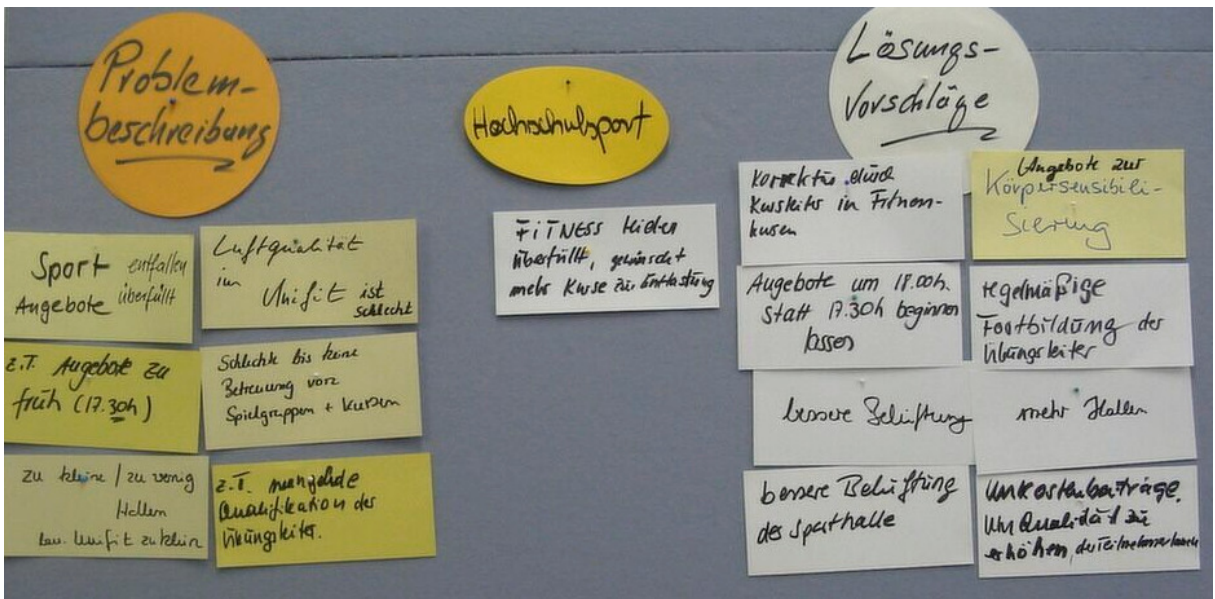 Problem-
beschreibung
Sport entfallen
Angebote überfüllt
Luftqualität
im Unifit ist
schlecht
z.T. Angebote zu
früh (17.30h)
Schlechte bis keine
Betreuung von
Spielgruppen + Kursen
zu kleine / zu wenig
Hallen
Unifit zu klein
z.T. mangelnde
Qualifikation der
Übungsleiter.
Hochschulsport
FITNESS leider
überfüllt, gewünscht
mehr Kurse zur Entlastung
Lösungs-
Vorschläge
Korrektur durch
Kursleiter in Fitness-
kursen
Angebote zur
Körpersensibili-
sierung
Angebote um 18.00h.
statt 17.30h beginnen
lassen
regelmäßige
Fortbildung der
Übungsleiter
bessere Belüftung
mehr Hallen
bessere Belüftung
der Sporthalle
Unkostenbeiträge.
Um Qualität zu
erhöhen, der